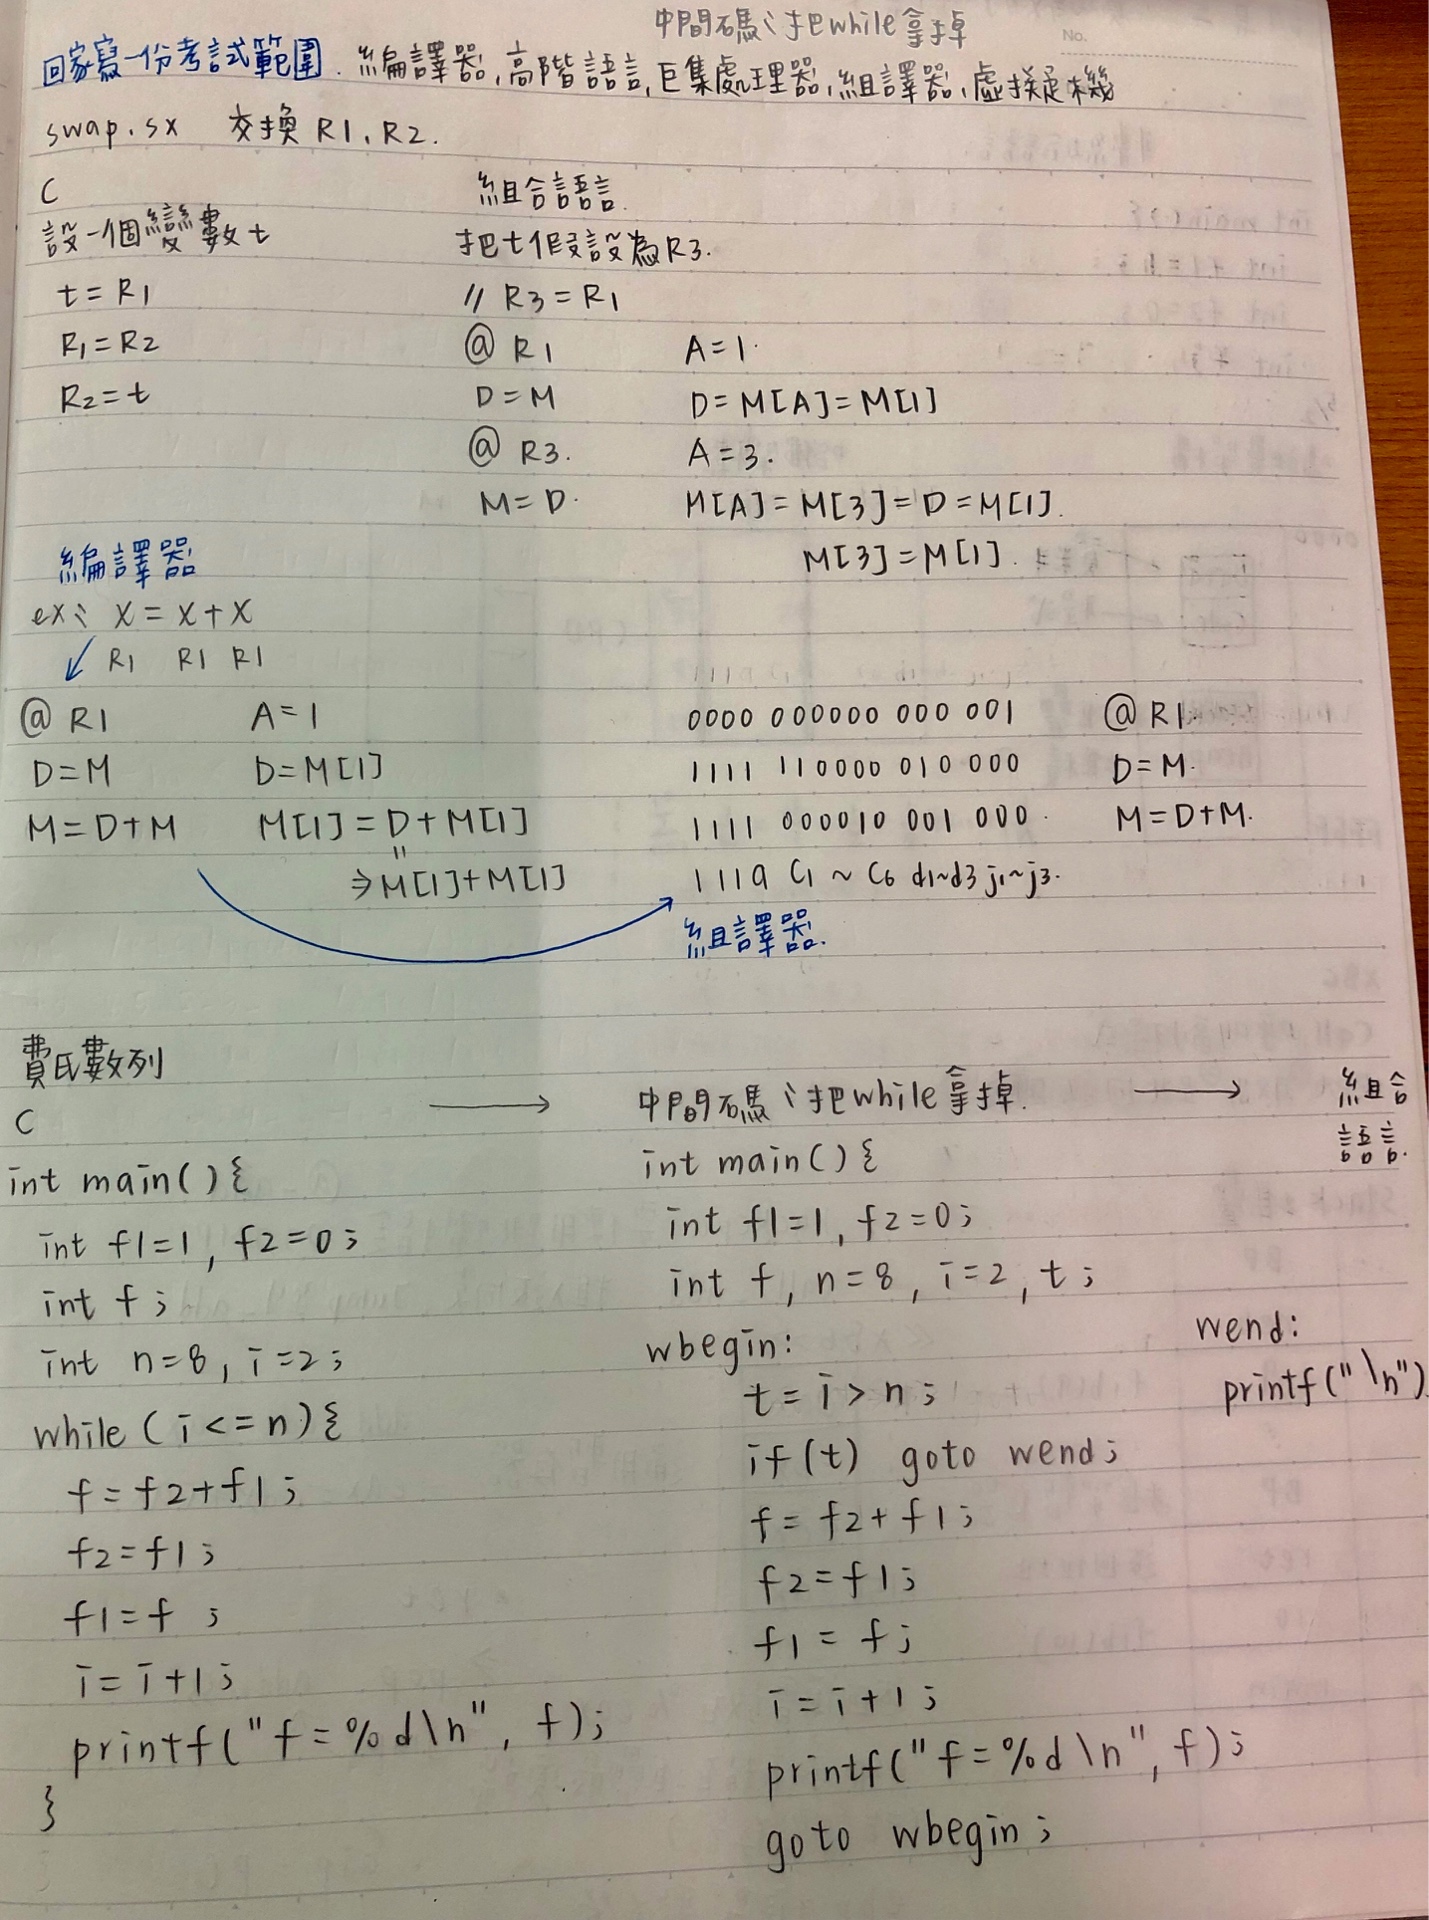 中間碼:把while拿掉
No.
回家寫一份考試範圍. 編譯器,高階語言,巨集處理器,組譯器,虛擬機
swap.sx 交換 R1, R2.
C
設一個變數t
t=R1
R1=R2
R2=t
組合語言.
把t假設為R3.
// R3=R1
@ R1 A=1.
D=M D=M[A]=M[1]
@ R3. A=3.
M=D. M[A]=M[3]=D=M[1].
M[3]=M[1].
編譯器
ex: X=X+X
R1 R1 R1
@ R1 A=1
D=M D=M[1]
M=D+M M[1]=D+M[1]
⇒M[1]+M[1]
0000 000000 000 001 @ R1.
1111 110000 010 000 D=M.
1111 000010 001 000. M=D+M.
111a C1~C6 d1~d3 j1~j3.
組譯器.
費氏數列
C
int main(){
int f1=1, f2=0;
int f;
int n=8, i=2;
while (i<=n){
f=f2+f1;
f2=f1;
f1=f;
i=i+1;
printf("f=%d\n", f);
}
→ 中間碼:把while拿掉. → 組合
語言.
int main(){
int f1=1, f2=0;
int f, n=8, i=2, t;
wbegin:
t=i>n;
if(t) goto wend;
f=f2+f1;
f2=f1;
f1=f;
i=i+1;
printf("f=%d\n", f);
goto wbegin;
wend:
printf("\n")